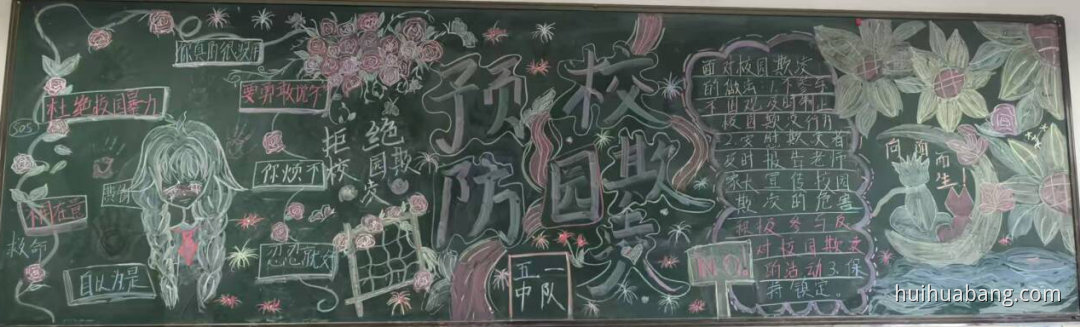 你真的很烦
杜绝校园暴力
要勇敢说不
SOS
你烦不
不用在意
救命
忍忍就
自以为是
拒绝
校园欺凌
预防
校园欺凌
五一
中队
NO!
面对校园欺凌
的做法:1.不参与
不围观
校园欺凌行为
2.安慰欺凌者
及时报告老师
家长宣传校园
欺凌的危害
积极参与反
对校园欺凌
的活动3.保
持镇定。
向阳而生!
huihuabang.com